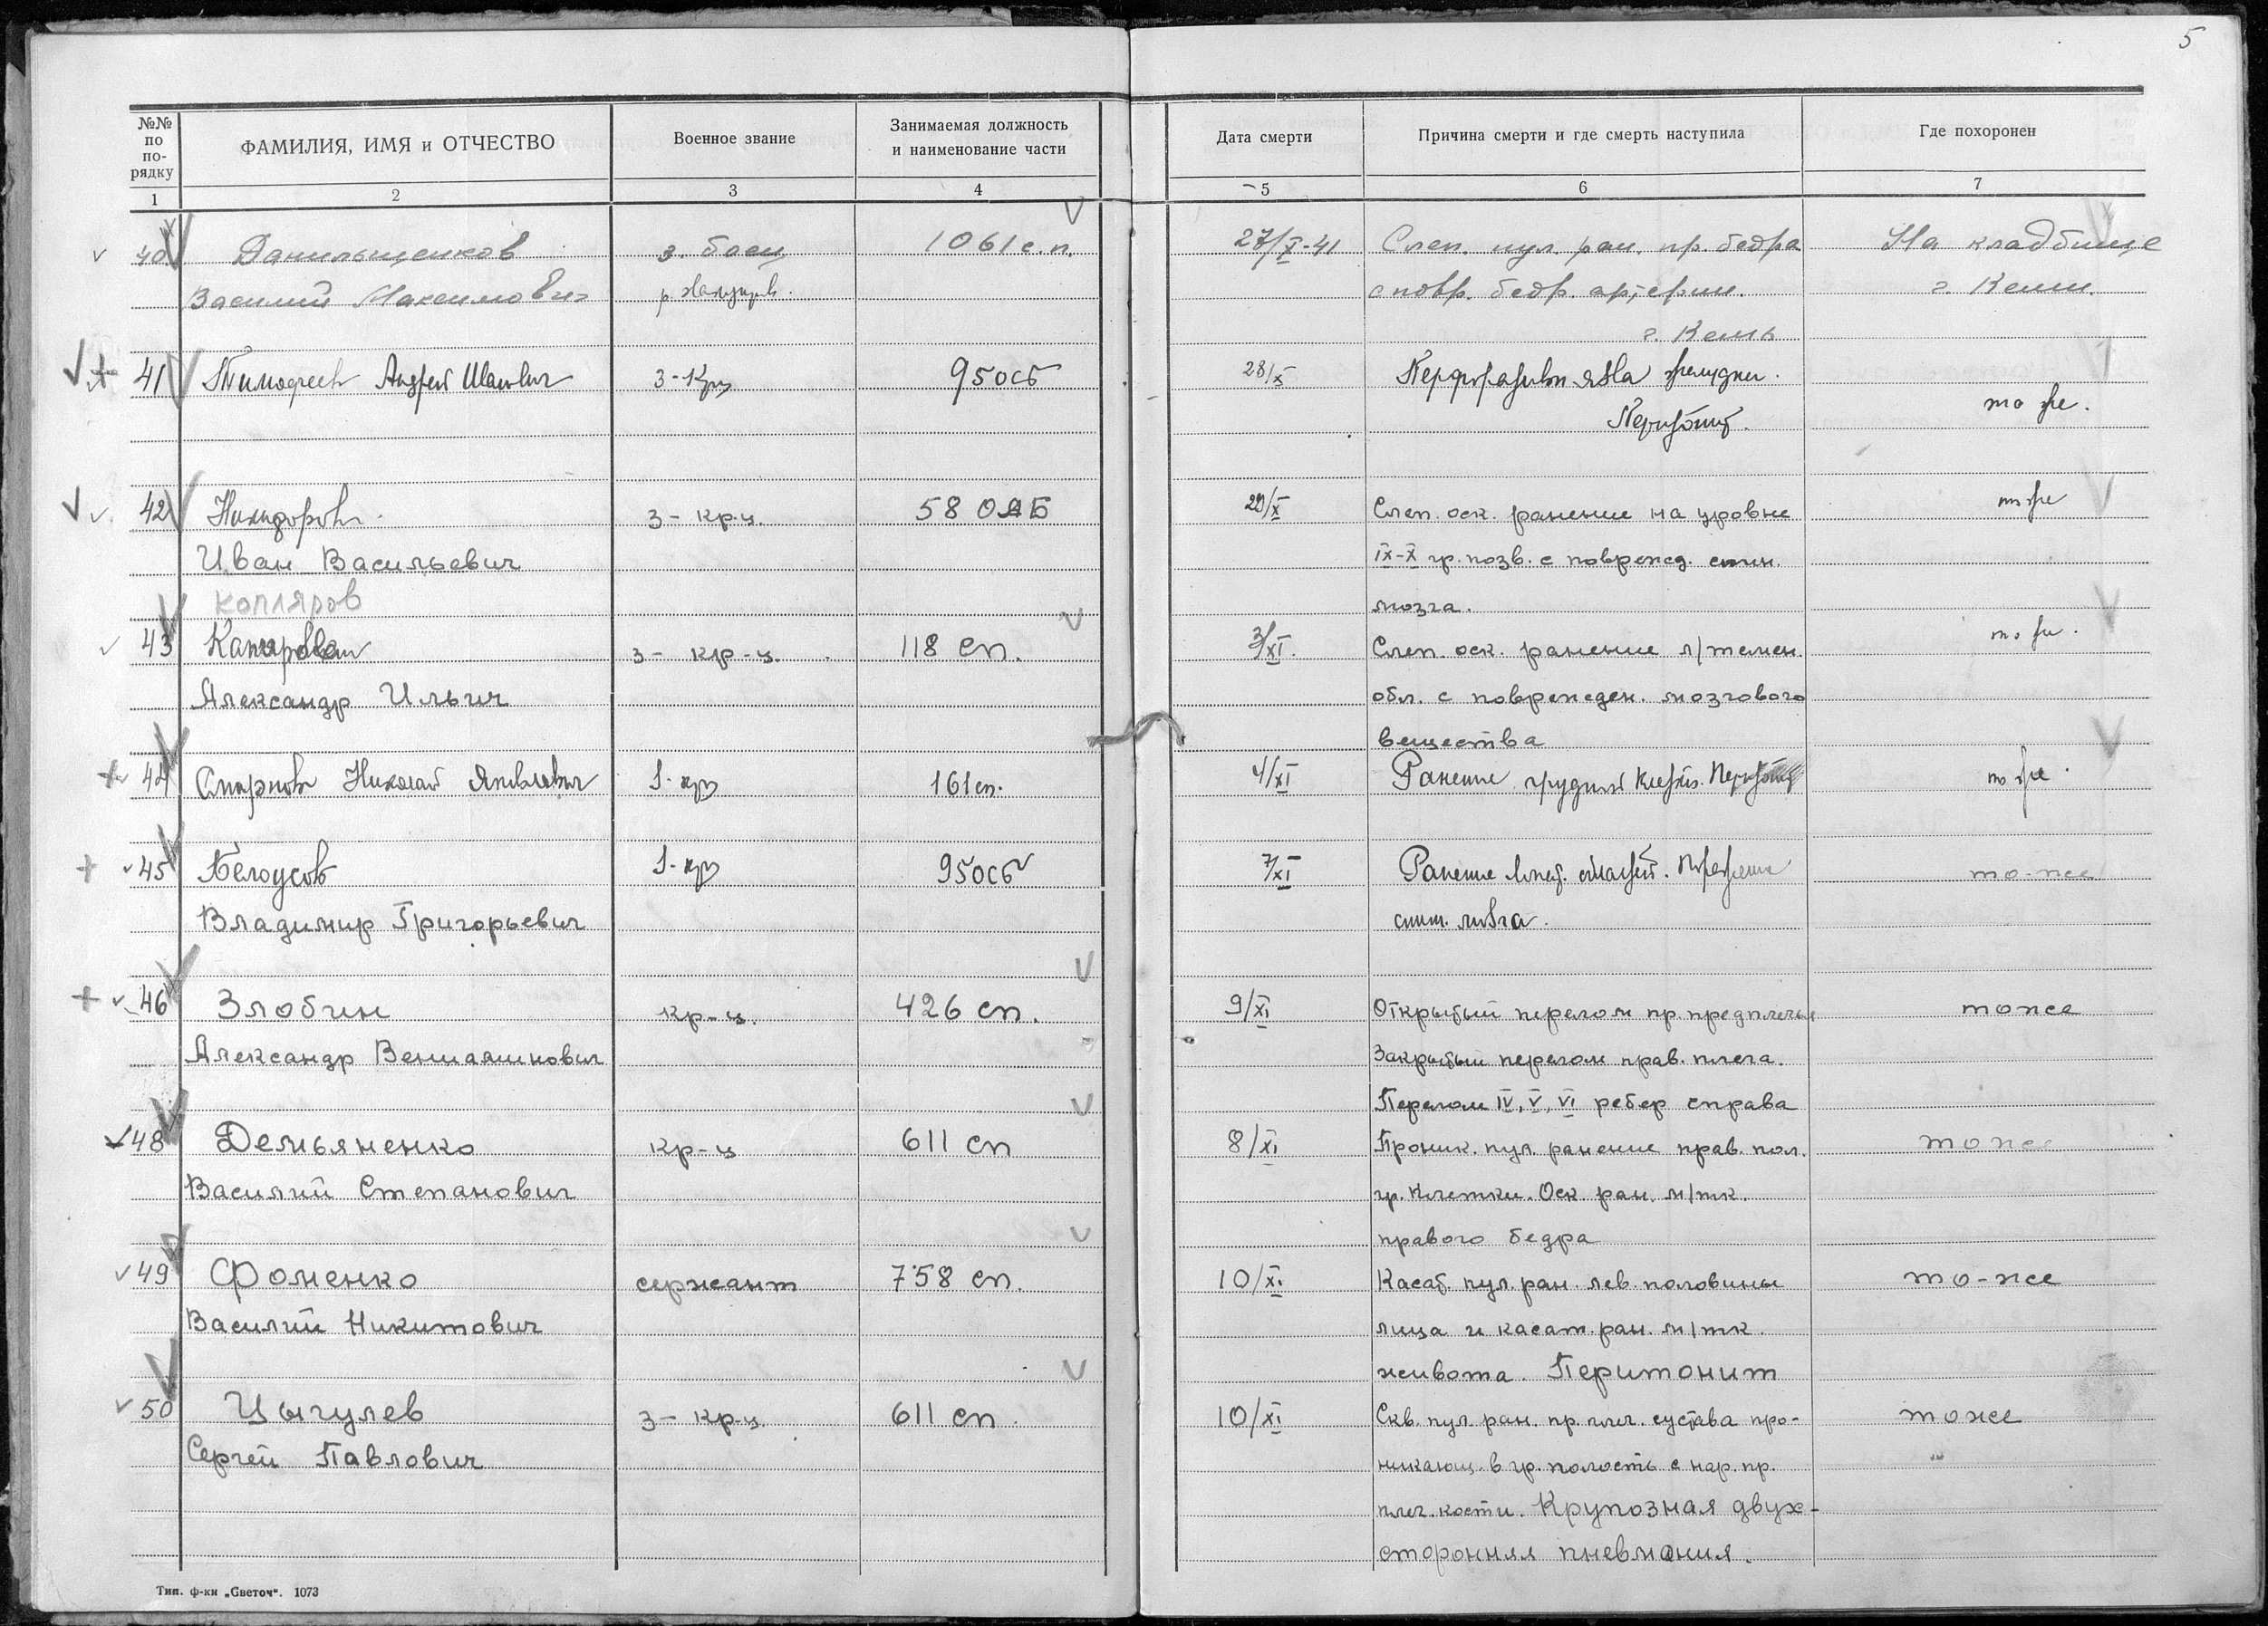 5
№№ по по-рядку
ФАМИЛИЯ, ИМЯ и ОТЧЕСТВО
Военное звание
Занимаемая должность
и наименование части
Дата смерти
Причина смерти и где смерть наступила
Где похоронен
1 2 3 4 5 6 7
40 Данильщенков з. боец 1061 с.п. 27/X-41 Слеп. пул. ран. пр. бедра На кладбище
Василий Максимович с повр. бедр. артерии. г. Кеми.
г. Кемь
41 Тимофеев Андрей 3-кр-ц 95 осб 28/X Перфоративн язва желудка. то же.
Перитонит.
42 Никифоров 3-кр-ц. 58 ОАБ 29/X Слеп. оск. ранение на уровне то же
Иван Васильевич IX-X гр. позв. с поврежд. спин.
копляров мозга.
43 3-кр-ц. 118 сп. 3/XI. Слеп. оск. ранение л/темен. то же.
Александр Ильич обл. с поврежден. мозгового
вещества
44 Смирнов Николай Яковлевич 161 сп. 4/XI Ранение грудной клетки. Перитонит то же.
45 Белоусов 95 осб 7/XI Ранение области. то-же
Владимир Григорьевич спин. мозга.
46 Злобин кр-ц. 426 сп. 9/XI Открытый перелом пр. предплечья то же
Александр Вениаминович Закрытый перелом прав. плеча.
Перелом IV, V, VI ребер справа
48 Демьяненко кр-ц 611 сп 8/XI Проник. пул. ранение прав. пол. то же
Василий Степанович гр. клетки. Оск. ран. м/тк.
правого бедра
49 Фоменко сержант 758 сп. 10/XI Касат. пул. ран. лев. половины то-же
Василий Никитович лица и касат. ран. м/тк.
живота. Перитонит
50 Цыгулев 3-кр-ц. 611 сп. 10/XI Скв. пул. ран. пр. плеч. сустава про- то же
Сергей Павлович никающ. в гр. полость с нар. пр.
плеч. кости. Крупозная двух-
сторонняя пневмония.
Тип. ф-ки „Светоч“. 1073